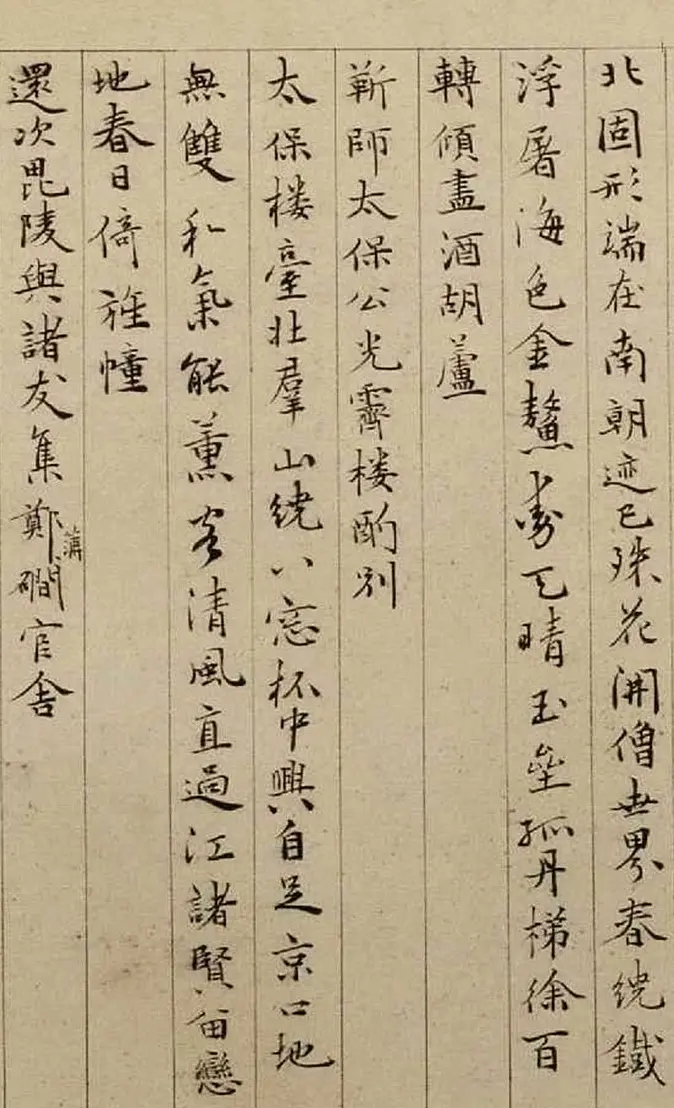 北固形端在南朝迹已殊花開僧世界春繞鐵
浮屠海色金鰲天晴玉壘孤丹梯徐百
轉傾盡酒胡蘆
靳師太保公光霽楼酌别
太保楼臺壯羣山繞八窓杯中興自足京口地
無雙和氣能薰客清風直過江諸賢留戀
地春日倚旌幢
還次毘陵與諸友集鄭蒲礀官舍